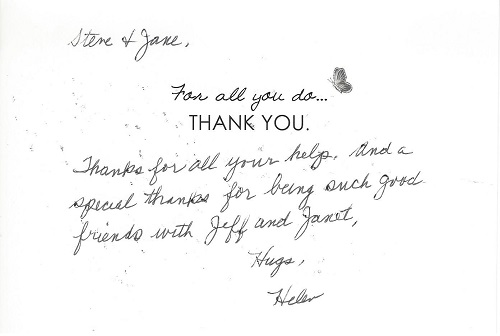 Steve & Jane,
For all you do...
THANK YOU.
Thanks for all your help. And a
special thanks for being such good
friends with Jeff and Janet,
Hugs,
Helen